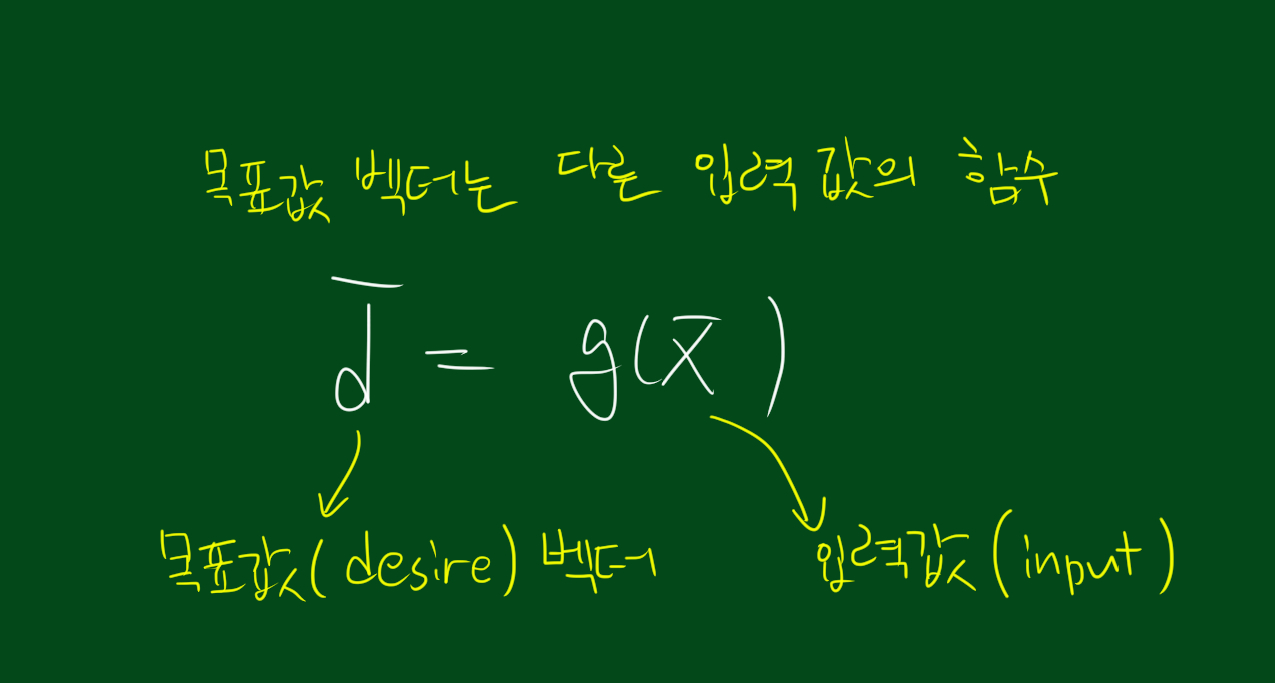 목표값 벡터는 다른 입력 값의 함수
d̅ = g(x̅)
목표값(desire) 벡터 입력값(input)